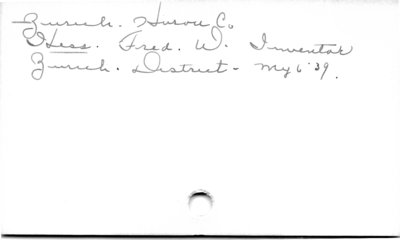 Zurich. Huron Co
Hess. Fred. W. Inventor
Zurich. District - My 6'39.